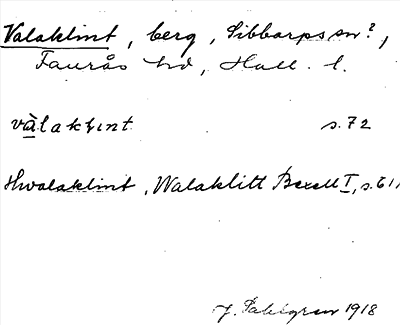 Valaklint, berg, Sibbarps sn?,
Faurås hd, Hall. l.
vàlaklint s. 72
Hwalaklint, Walaklitt Bexell I, s. 61,
J. Sahlgren 1918